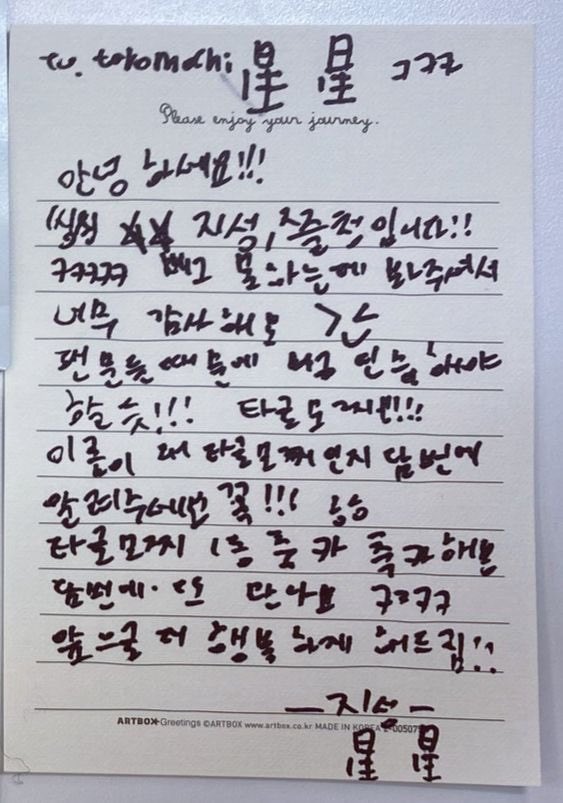 to. toromachi 星 星 ㅋㅋㅋ
Please enjoy your journey.
안녕 하세요!!!
지성, 입니다!!
ㅋㅋㅋㅋㅋ 못 하는데 봐주셔서
너무 감사해요 >_<
팬 분들 때문에 더 하야
할 듯!!! 타로모찌!!!
이름이 왜 타로모찌 인지 담번에
알려주세요 꼭!!! ㅎㅎ
타로모찌 1등 축하 축하해요
담번에. 또 만나요 ㅋㅋㅋㅋ
앞으로 더 행복 하게 해드림!!
— 지성 —
ARTBOX Greetings ©ARTBOX www.artbox.co.kr MADE IN KOREA
星 星